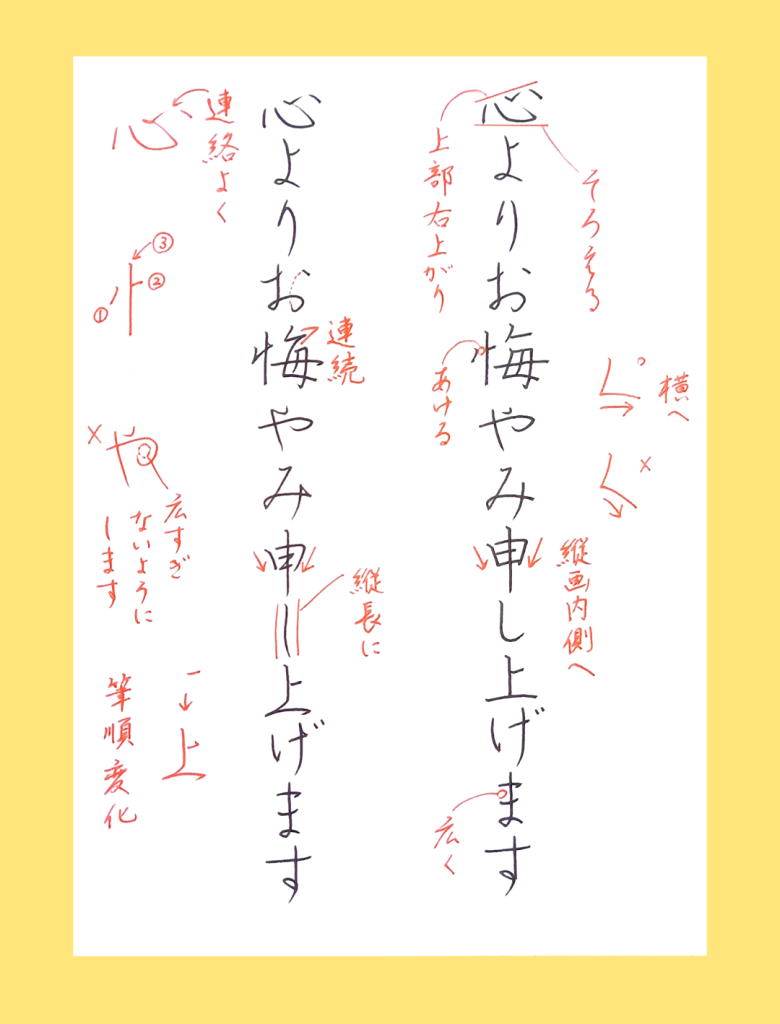 心よりお悔やみ申し上げます
そろえる
上部右上がり
あける
横へ
×
縦画内側へ
広く
心よりお悔やみ申し上げます
連絡よく
心
連続
①
②
③
×
や
広すぎ
ないように
します
縦長に
上
筆順変化